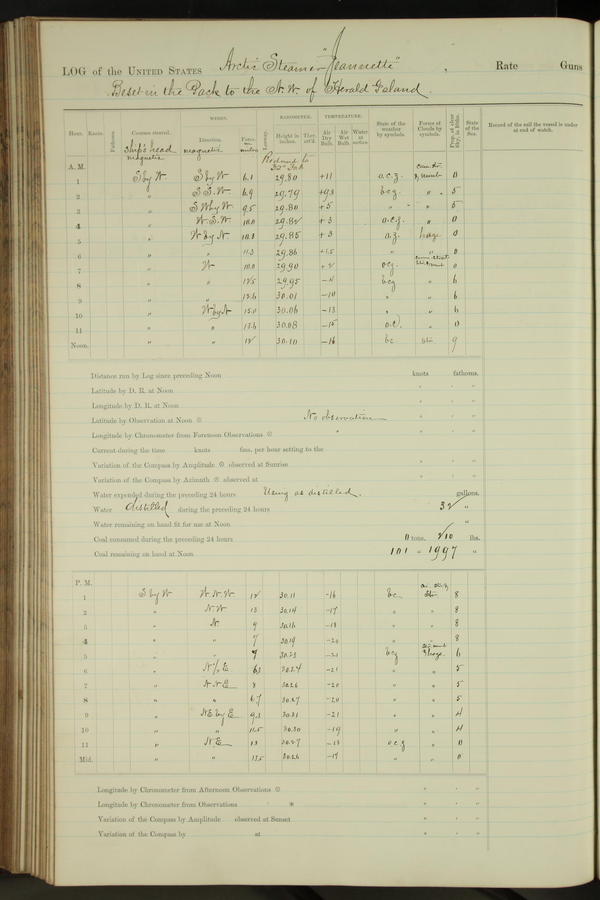 LOG of the UNITED STATES Arctic Steamer "Jeannette" , Rate Guns
Beset in the Pack to the N.W. of Herald Island.
WINDS. BAROMETER. TEMPERATURE.
Hour. Knots. Fathoms. Courses steered. Direction. Force Leeway. Height in inches. Ther. att'd. Air Dry Bulb. Air Wet Bulb. Water at surface State of the weather by symbols. Forms of Clouds by symbols. Prop. of clear Sky, in 10ths. State of the Sea. Record of the sail the vessel is under at end of watch.
Ship's head magnetic magnetic miles Reduced to 32° Fah
A. M.
1 S by W S by W 6.1 29.80 +11 o.c.z. 0
2 " S.S.W. 6.9 29.79 +9.8 b.c.z. " " 5
3 " S W by W 9.5 29.80 +5 " " " 5
4 " W.S.W. 10.0 29.82 +3 o.c.z. " 0
5 " W by N 10.8 29.85 +3 o.z. haze 0
6 " " 11.3 29.86 +1.5 " " 0
7 " W 10.0 29.90 +2 ocz. 0
8 " " 12.5 29.95 bcz " 6
9 " " 12.6 30.01 -10 " " 6
10 " W by N 15.0 30.06 -13 " " 6
11 " " 13.6 30.08 -15 " 0
Noon. " " 12 30.10 -16 bc Str. 9
Distance run by Log since preceding Noon knots fathoms.
Latitude by D. R. at Noon
Longitude by D. R. at Noon
Latitude by Observation at Noon No observation
Longitude by Chronometer from Forenoon Observations "
Current during the time knots fms. per hour setting to the
Variation of the Compass by Amplitude observed at Sunrise
Variation of the Compass by Azimuth observed at
Water expended during the preceding 24 hours Using as distilled. gallons.
Water distilled during the preceding 24 hours 32 "
Water remaining on hand fit for use at Noon "
Coal consumed during the preceding 24 hours 0 tons, 210 lbs.
Coal remaining on hand at Noon 101 " 1997 "
P. M.
1 S by W W.N.W. 12 30.11 -16 bc Str. 8
2 " N.W. 13 30.14 -17 " " 8
3 " N 9 30.16 -18 " " 8
4 " " 7 30.19 -20 " " 8
5 " " 7 30.23 -21 bcz & haze 6
6 " N/E 6.3 30.24 -21 " " 5
7 " N.N.E. 8 30.26 -20 " " 5
8 " " 6.7 30.27 -20 " " 5
9 " NE by E 9.3 30.31 -21 " " 4
10 " " 11.5 30.30 -19 " " 4
11 " N.E. 13 30.27 -18 o c z " 0
Mid. " " 13.5 30.26 -17 " " 0
Longitude by Chronometer from Afternoon Observations
Longitude by Chronometer from Observations *
Variation of the Compass by Amplitude observed at Sunset
Variation of the Compass by at